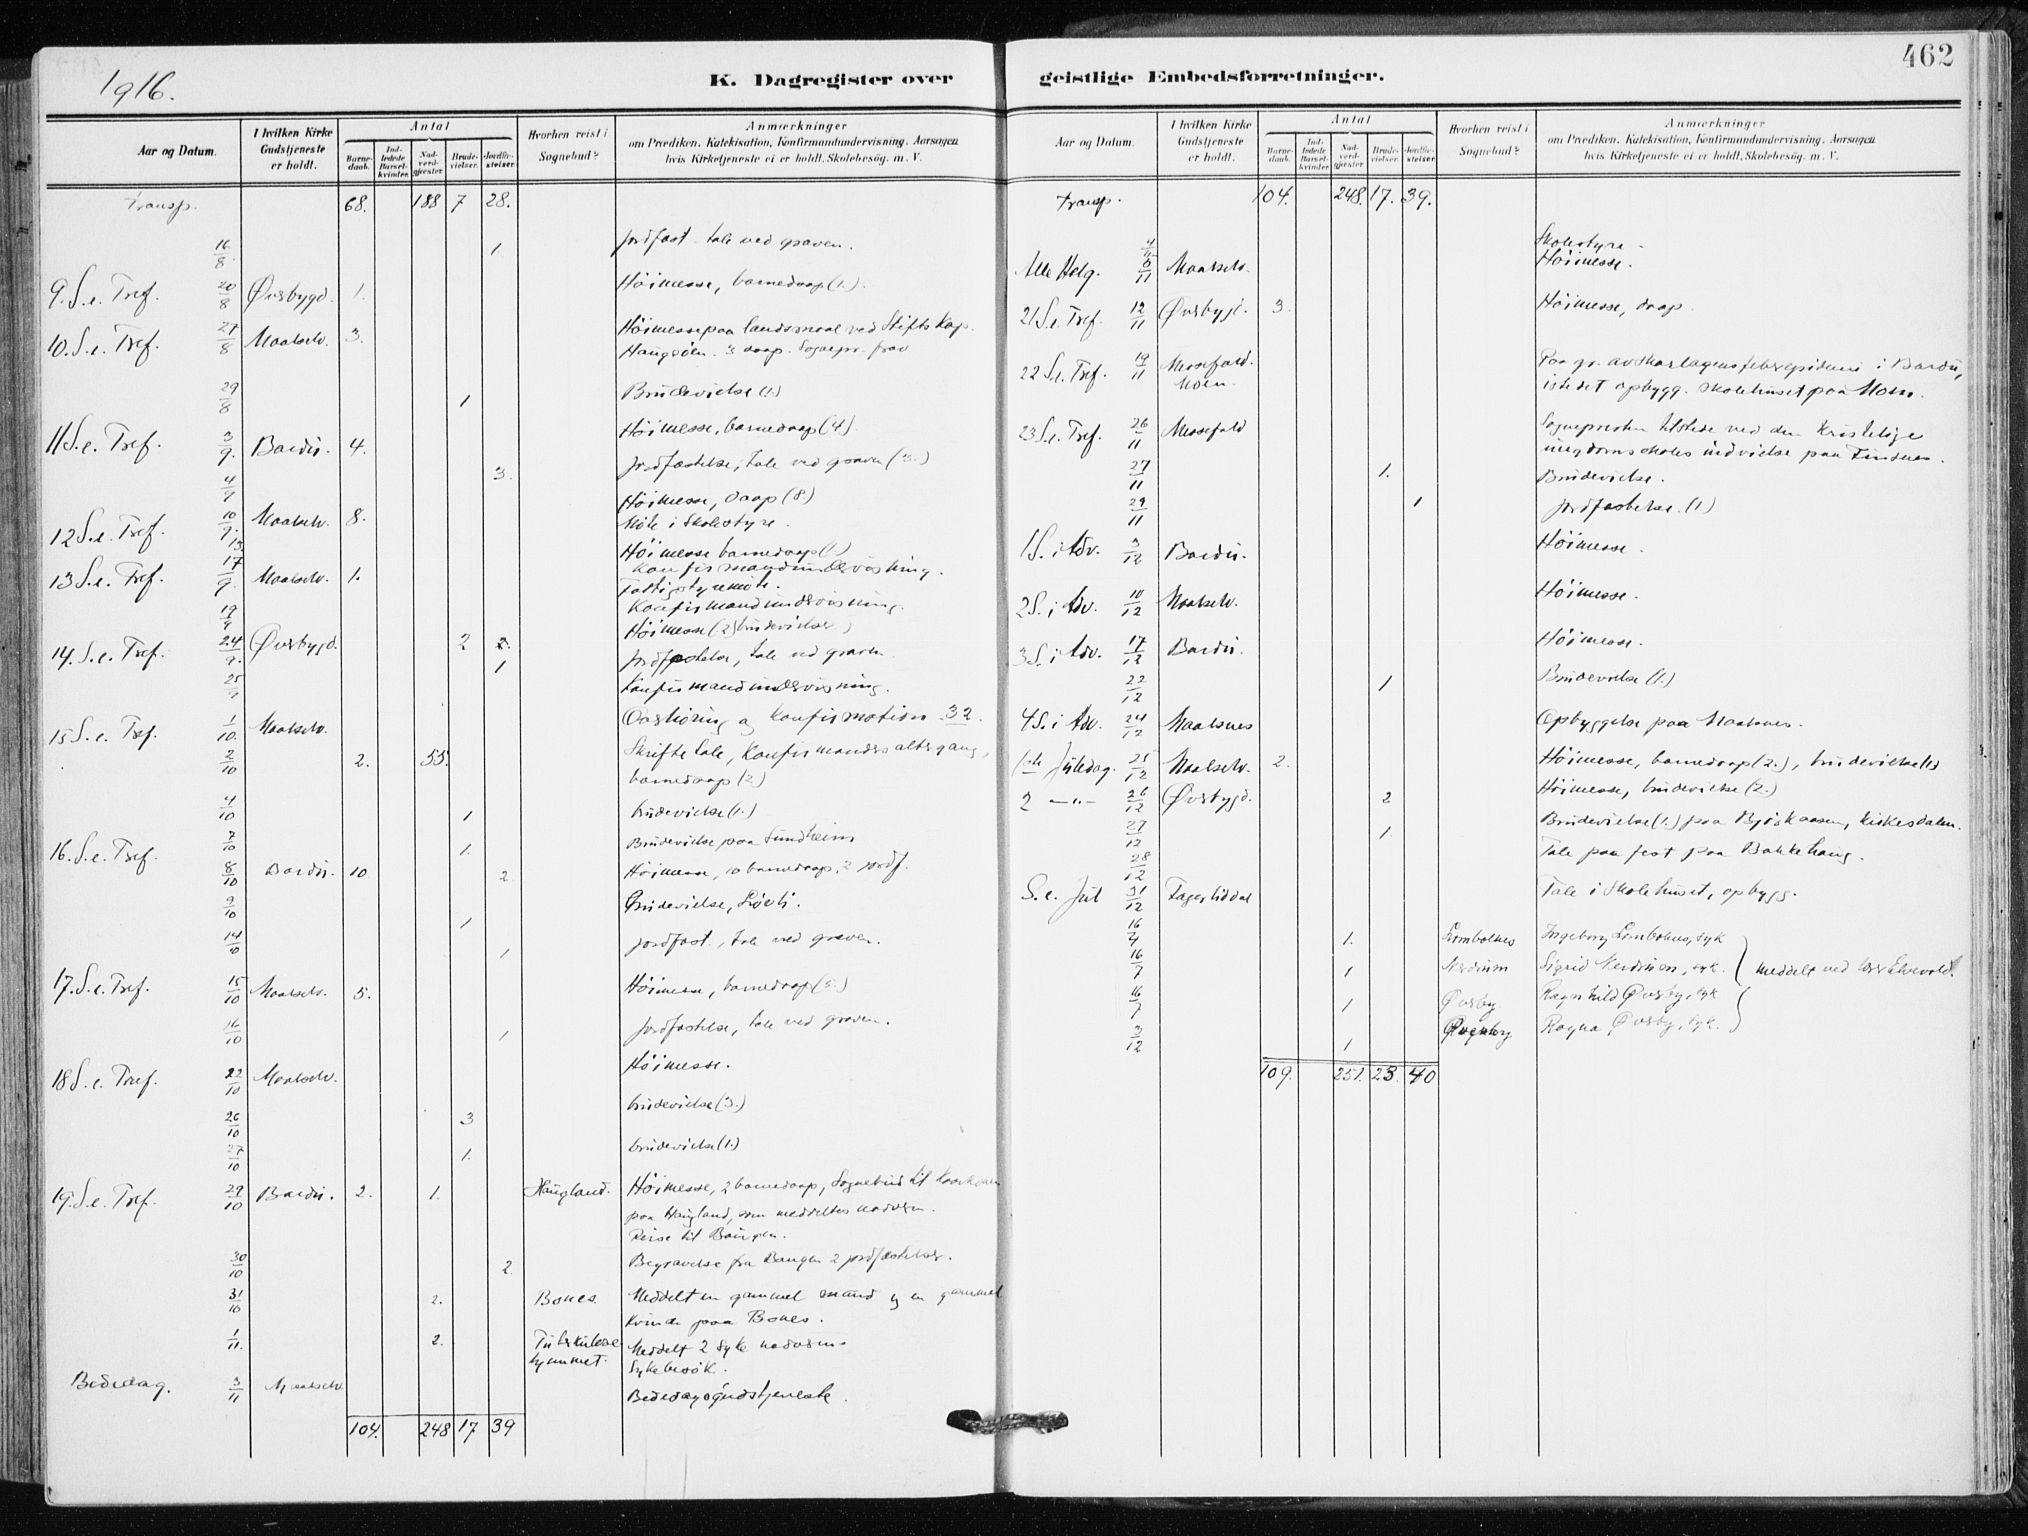 462
1916.
K. Dagregister over geistlige Embedsforretninger.
Aar og Datum.
I hvilken Kirke Gudstjeneste er holdt.
Antal
Barne-daab.
Ind-ledede Barsel-kvinder.
Nad-verd-gjæster
Brude-vielser.
Jordfæ-stelser
Hvorhen reist i Sognebud?
Anmærkninger
om Prædiken, Katekisation, Konfirmandundervisning, Aarsagen
hvis Kirketjeneste ei er holdt, Skolebesøg. m. V.
Transp. 68. 188 7 28.
16/8. 1 Jordfast. tale ved graven.
9. S. e. Tref. 20/8 Øvrbygd. 1. Høimesse, barnedaap (1.).
10. S. e. Tref. 27/8 Maalselv. 3. Høimesse paa landsmaal ved Stiftskap.
Haugsöen. 3 daap. Sognepr. frav
29/8 1 Brudevielse (1.)
11 S. e. Tref. 3/9. Bardu. 4. Høimesse, barnedaap (4).
4/9 3. Jordfæstelse, tale ved graven (3.)
12 S. e. Tref. 10/9. Maalselv. 8. Høimesse, daap (8.)
Møte i Skolestyre.
13 S. e. Tref. 17/9. Maalselv. 1. Høimesse barnedaap (1.)
Konfirmandundervisning.
Fattigstyremøte.
19/9 Konfirmandundervisning.
14. S. e. Tref. 24/9. Øvrbygd. 2 2. Høimesse (2) brudevielser)
1 Jordfæstelse, tale ved graven.
25/9 Konfirmandundervisning.
15 S. e. Tref. 1/10. Maalselv. Overhøring og konfirmation 32.
2/10 2. 55. Skriftetale, konfirmanders altergang,
barnedaap (2.)
4/10 1 brudevielse (1.)
7/10 1. Brudevielse paa Sundheim
16. S. e. Tref. 8/10 Bardu. 10 2. Høimesse, 10 barnedaap, 2 jordf.
9/10 1 Brudevielse, Løvli.
14/10 1 jordfast., tale ved graven.
17. S. e. Tref. 15/10 Maalselv. 5. Høimesse, barnedaap (5.)
16/10 1 Jordfæstelse, tale ved graven.
18 S. e. Tref. 22/10 Maalselv. Høimesse.
26/10 3 brudevielse (3.)
27/10 1. brudevielse (1.)
19. S. e. Tref. 29/10 Bardu. 2. 1. Haugland. Høimesse, 2 barnedaap, Sognebud til
paa Haugland, som meddeltes nadveren.
Reise til Bangen.
30/10 2. Begravelse fra Bangen 2 jordfæstelser.
31/10 2. Bones. Meddelt en gammel mand og en gammel
kvinde paa Bones.
1/11. 2. Tuberkulose hjemmet. Meddelt 2 syke nadveren
Sykebesøk.
Bededag. 3/11 Maalselv Bededagsgudstjeneste.
104. 248 17 39
Aar og Datum.
I hvilken Kirke Gudstjeneste er holdt.
Antal
Barne-daab.
Ind-ledede Barsel-kvinder.
Nad-verd-gjæster
Brude-vielser.
Jordfæ-stelser
Hvorhen reist i Sognebud?
Anmærkninger
om Prædiken, Katekisation, Konfirmandundervisning, Aarsagen
hvis Kirketjeneste ei er holdt, Skolebesøg. m. V.
Transp. 104. 248. 17. 39.
4/11 Skolestyre.
Alle Helg. 6/11 Maalselv. Høimesse.
21 S. e. Tref. 12/11 Øvrbygd. 3. Høimesse, daap.
22 S. e. Tref. 19/11 Messefald. Moen. Paa gr. av skarlagensfeberepidemi i Bardu,
istedet opbygg. skolehuset paa Moen.
23 S. e. Tref. 26/11 Messefald Sognepresten tilstede ved den kristelige
ungdomsskoles indvielse paa Finsnes.
27/11 1. Brudevielse.
29/11 1 jordfæstelse. (1)
1 S. i Adv. 3/12 Bardu. Høimesse.
2 S. i Adv. 10/12 Maalselv. Høimesse.
3 S. i Adv. 17/12 Bardu. Høimesse.
22/12 1 Brudevielse (1.)
4 S. i Adv. 24/12 Maalsnes Opbyggelse paa Maalsnes.
1ste Juledag. 25/12 Maalselv. 2. Høimesse, barnedaap (2.), brudevielse (1)
2 —"— 26/12 Øvrbygd. 2 Høimesse, brudevielse (2.)
27/12 1. Brudevielse (1.) paa Bjørkaasen, Kirkesdalen.
28/12 Tale paa fest paa Bakkehaug.
S. e. Jul 31/12 Fagerliddal Tale i Skolehuset, opbygg.
16/4 1. Lombolnes Ingeborg Lombolnes, syk
16/7 1 Nerdrum Sigrid Nerdrum, syk. meddelt ved
16/7 1 Øvrby Ragnhild Øvrby, syk
3/12 1 Ragna Øvrby, syk.
109. 251. 23. 40